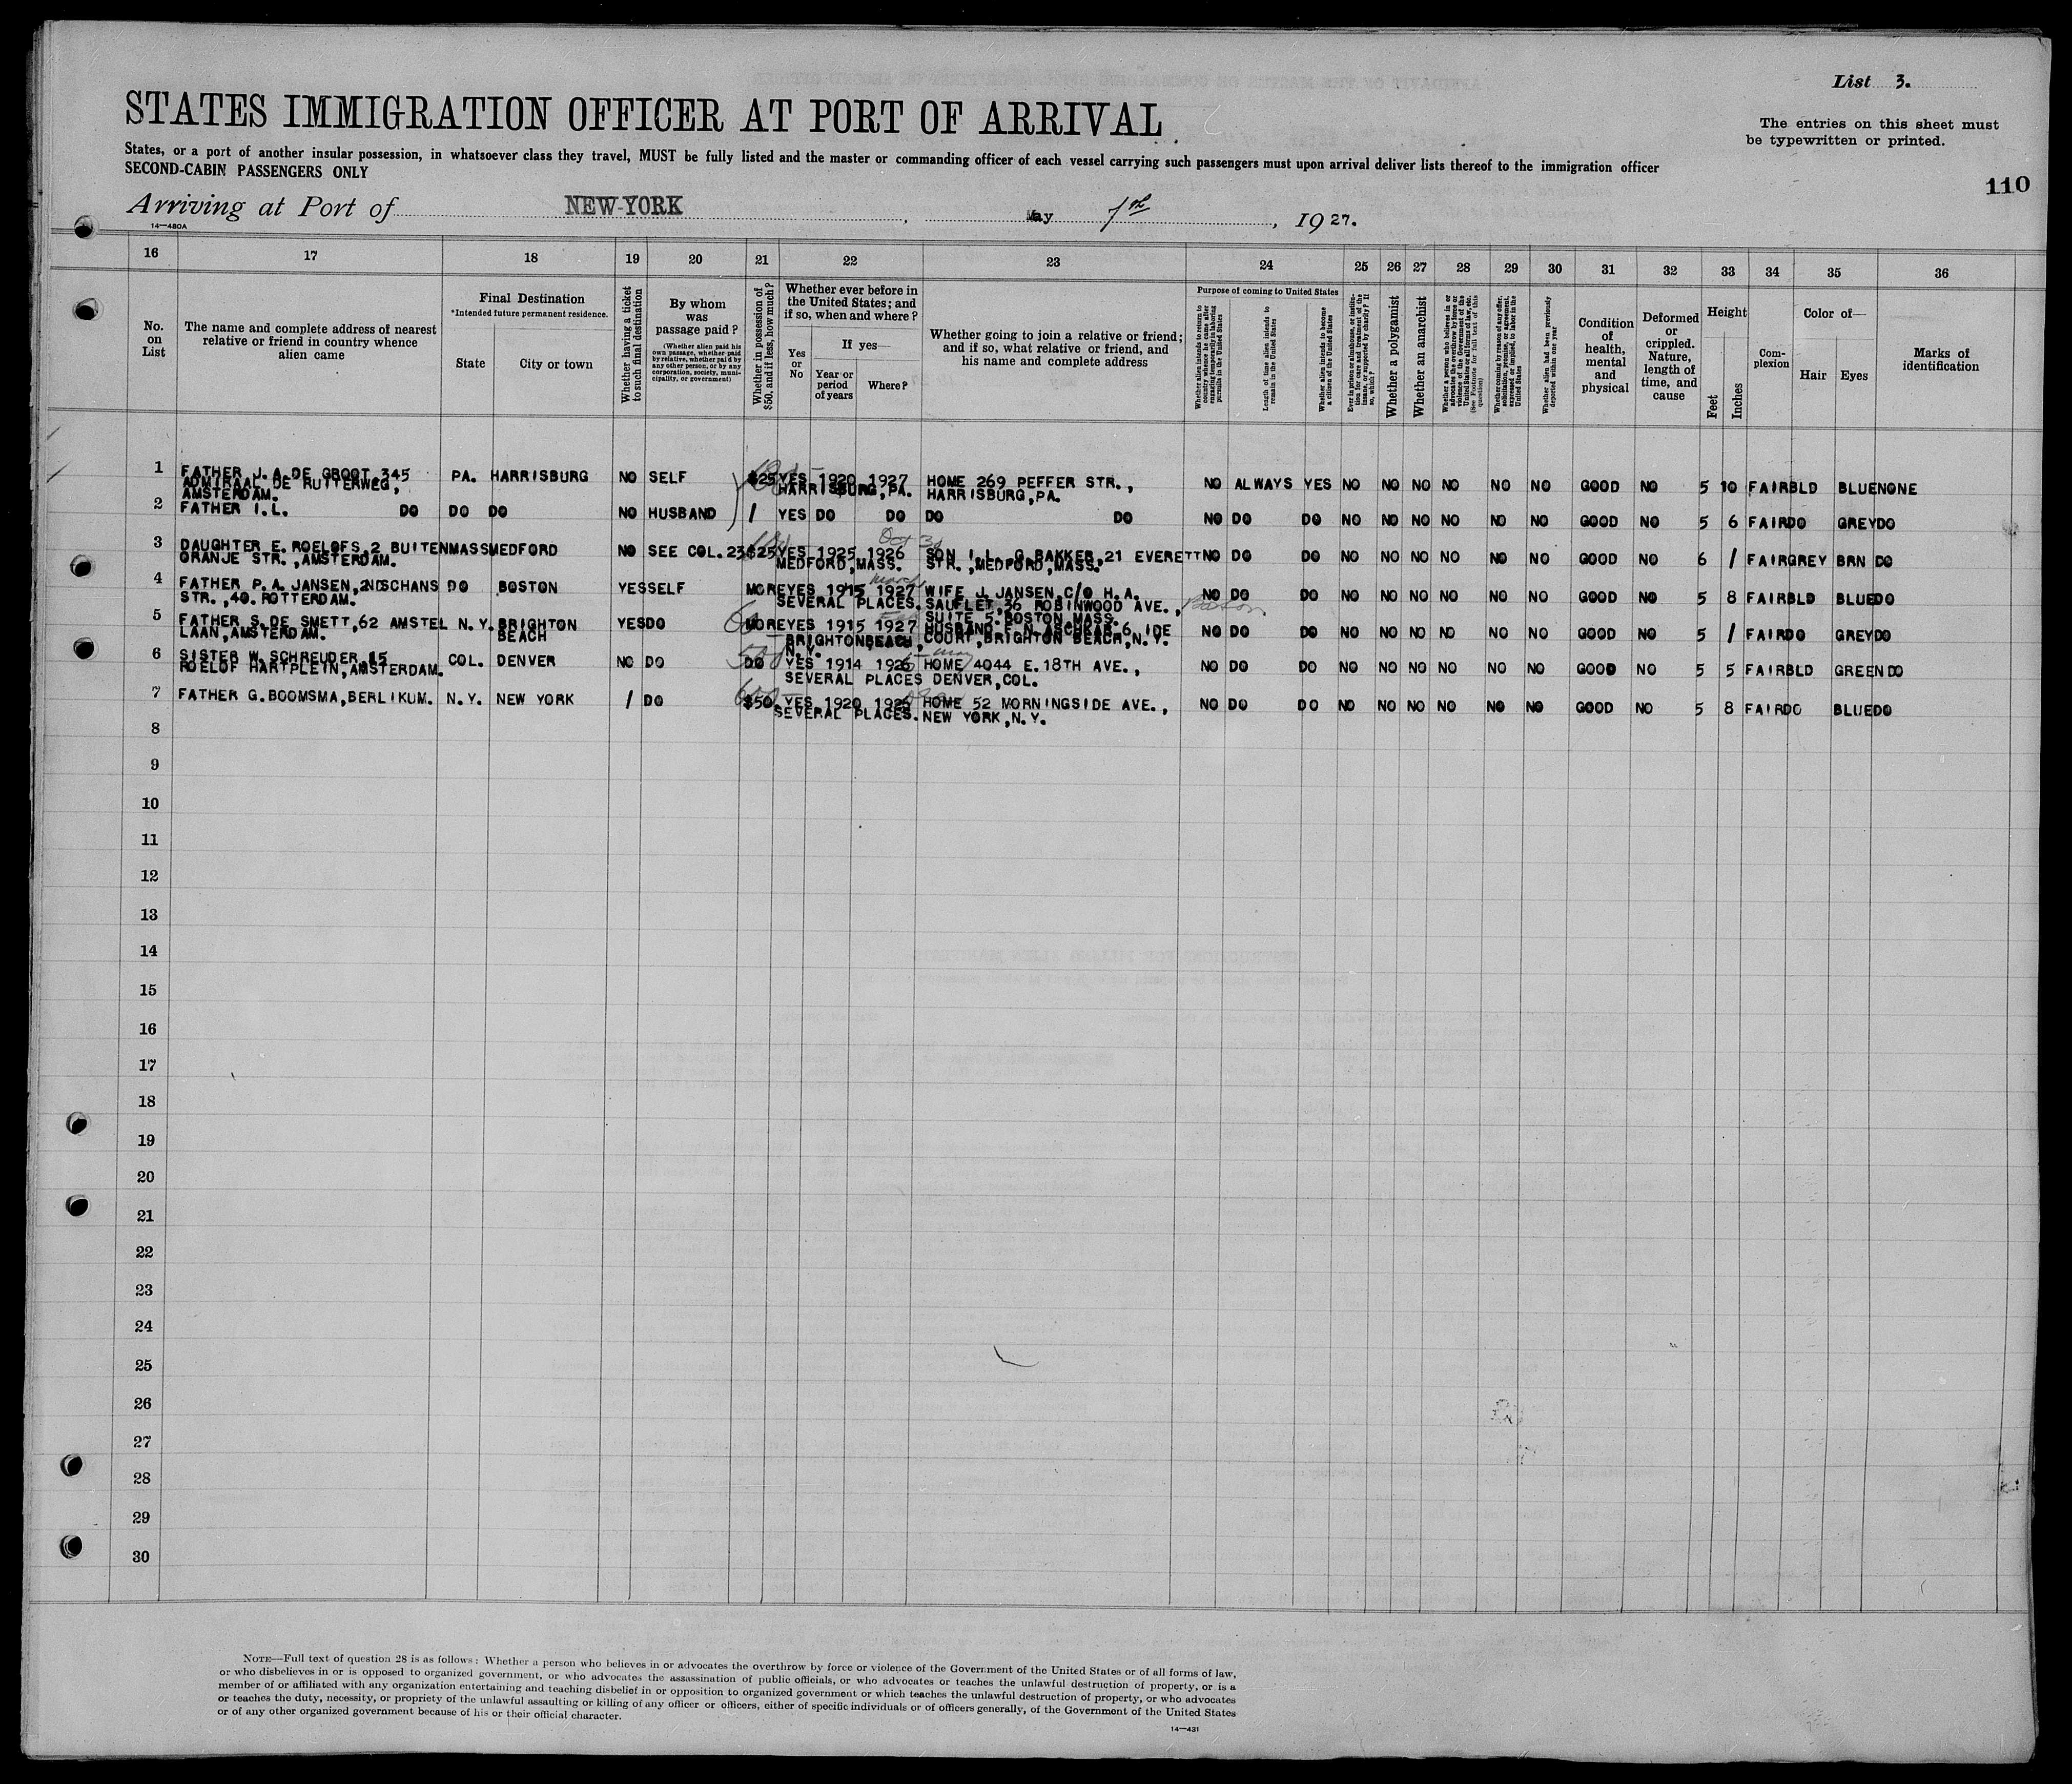 List 3.
STATES IMMIGRATION OFFICER AT PORT OF ARRIVAL
The entries on this sheet must
be typewritten or printed.
States, or a port of another insular possession, in whatsoever class they travel, MUST be fully listed and the master or commanding officer of each vessel carrying such passengers must upon arrival deliver lists thereof to the immigration officer
SECOND-CABIN PASSENGERS ONLY
110
Arriving at Port of NEW-YORK, May 1927.
14—480A
16 17 18 19 20 21 22 23 24 25 26 27 28 29 30 31 32 33 34 35 36
No. on List
The name and complete address of nearest relative or friend in country whence alien came
Final Destination
*Intended future permanent residence.
State
City or town
Whether having a ticket to such final destination
By whom was passage paid?
(Whether alien paid his own passage, whether paid by relative, whether paid by any other person, or by any corporation, society, municipality, or government)
Whether in possession of $50, and if less, how much?
Whether ever before in the United States; and if so, when and where?
Yes or No
If yes—
Year or period of years
Where?
Whether going to join a relative or friend; and if so, what relative or friend, and his name and complete address
Purpose of coming to United States
Whether alien intends to return to country whence he came after engaging temporarily in laboring pursuits in the United States
Length of time alien intends to remain in the United States
Whether alien intends to become a citizen of the United States
Ever in prison or almshouse, or institution for care and treatment of the insane, or supported by charity? If so, which?
Whether a polygamist
Whether an anarchist
Whether a person who believes in or advocates the overthrow by force or violence of the Government of the United States or all forms of law, etc. (See Footnote for full text of this question)
Whether coming by reason of any offer, solicitation, promise, or agreement, expressed or implied, to labor in the United States
Whether alien had been previously deported within one year
Condition of health, mental and physical
Deformed or crippled. Nature, length of time, and cause
Height
Feet
Inches
Complexion
Color of—
Hair
Eyes
Marks of identification
1 FATHER J. A. DE GROOT, 345 PA. HARRISBURG NO SELF $25 YES 1920 1927 HOME 269 PEFFER STR., NO ALWAYS YES NO NO NO NO NO NO GOOD NO 5 10 FAIR BLD BLUE NONE
ADMIRAAL DE RUYTERWEG, HARRISBURG, PA. HARRISBURG, PA.
AMSTERDAM.
2 FATHER I. L. DO DO DO NO HUSBAND / YES DO DO DO DO NO DO DO NO NO NO NO NO NO GOOD NO 5 6 FAIR DO GREY DO
3 DAUGHTER E. ROELOFS, 2 BUITEN MASS MEDFORD NO SEE COL. 23 $25 YES 1925 1926 SON I. L. G. BAKKER, 21 EVERETT NO DO DO NO NO NO NO NO NO GOOD NO 6 / FAIR GREY BRN DO
ORANJE STR., AMSTERDAM. MEDFORD, MASS. STR., MEDFORD, MASS.
4 FATHER P. A. JANSEN, 2ND SCHANS DO BOSTON YES SELF MORE YES 1915 1927 WIFE J. JANSEN, C/O H. A. NO DO DO NO NO NO NO NO NO GOOD NO 5 8 FAIR BLD BLUE DO
STR., 40. ROTTERDAM. SEVERAL PLACES. SAUFLET, 36 ROBINWOOD AVE., Boston
SUITE 5. BOSTON MASS.
5 FATHER S. DE SMETT, 62 AMSTEL N.Y. BRIGHTON YES DO MORE YES 1915 1927 HUSBAND F. N. ASCHKAR 6 IDE NO DO DO NO NO NO NO NO NO GOOD NO 5 / FAIR DO GREY DO
LAAN, AMSTERDAM. BEACH BRIGHTON BEACH, COURT, BRIGHTON BEACH, N.Y.
N.Y.
6 SISTER W. SCHREUDER 15 COL. DENVER NO DO DO YES 1914 1926 HOME 4044 E. 18TH AVE., NO DO DO NO NO NO NO NO NO GOOD NO 5 5 FAIR BLD GREEN DO
ROELOF HARTPLEIN, AMSTERDAM. SEVERAL PLACES DENVER, COL.
7 FATHER G. BOOMSMA, BERLIKUM. N.Y. NEW YORK / DO $50. YES 1920 1925 HOME 52 MORNINGSIDE AVE., NO DO DO NO NO NO NO NO NO GOOD NO 5 8 FAIR DO BLUE DO
SEVERAL PLACES. NEW YORK, N.Y.
8
9
10
11
12
13
14
15
16
17
18
19
20
21
22
23
24
25
26
27
28
29
30
NOTE—Full text of question 28 is as follows: Whether a person who believes in or advocates the overthrow by force or violence of the Government of the United States or of all forms of law,
or who disbelieves in or is opposed to organized government, or who advocates the assassination of public officials, or who advocates or teaches the unlawful destruction of property, or is a
member of or affiliated with any organization entertaining and teaching disbelief in or opposition to organized government or which teaches the unlawful destruction of property, or who advocates
or teaches the duty, necessity, or propriety of the unlawful assaulting or killing of any officer or officers, either of specific individuals or of officers generally, of the Government of the United States
or of any other organized government because of his or their official character.
14—431